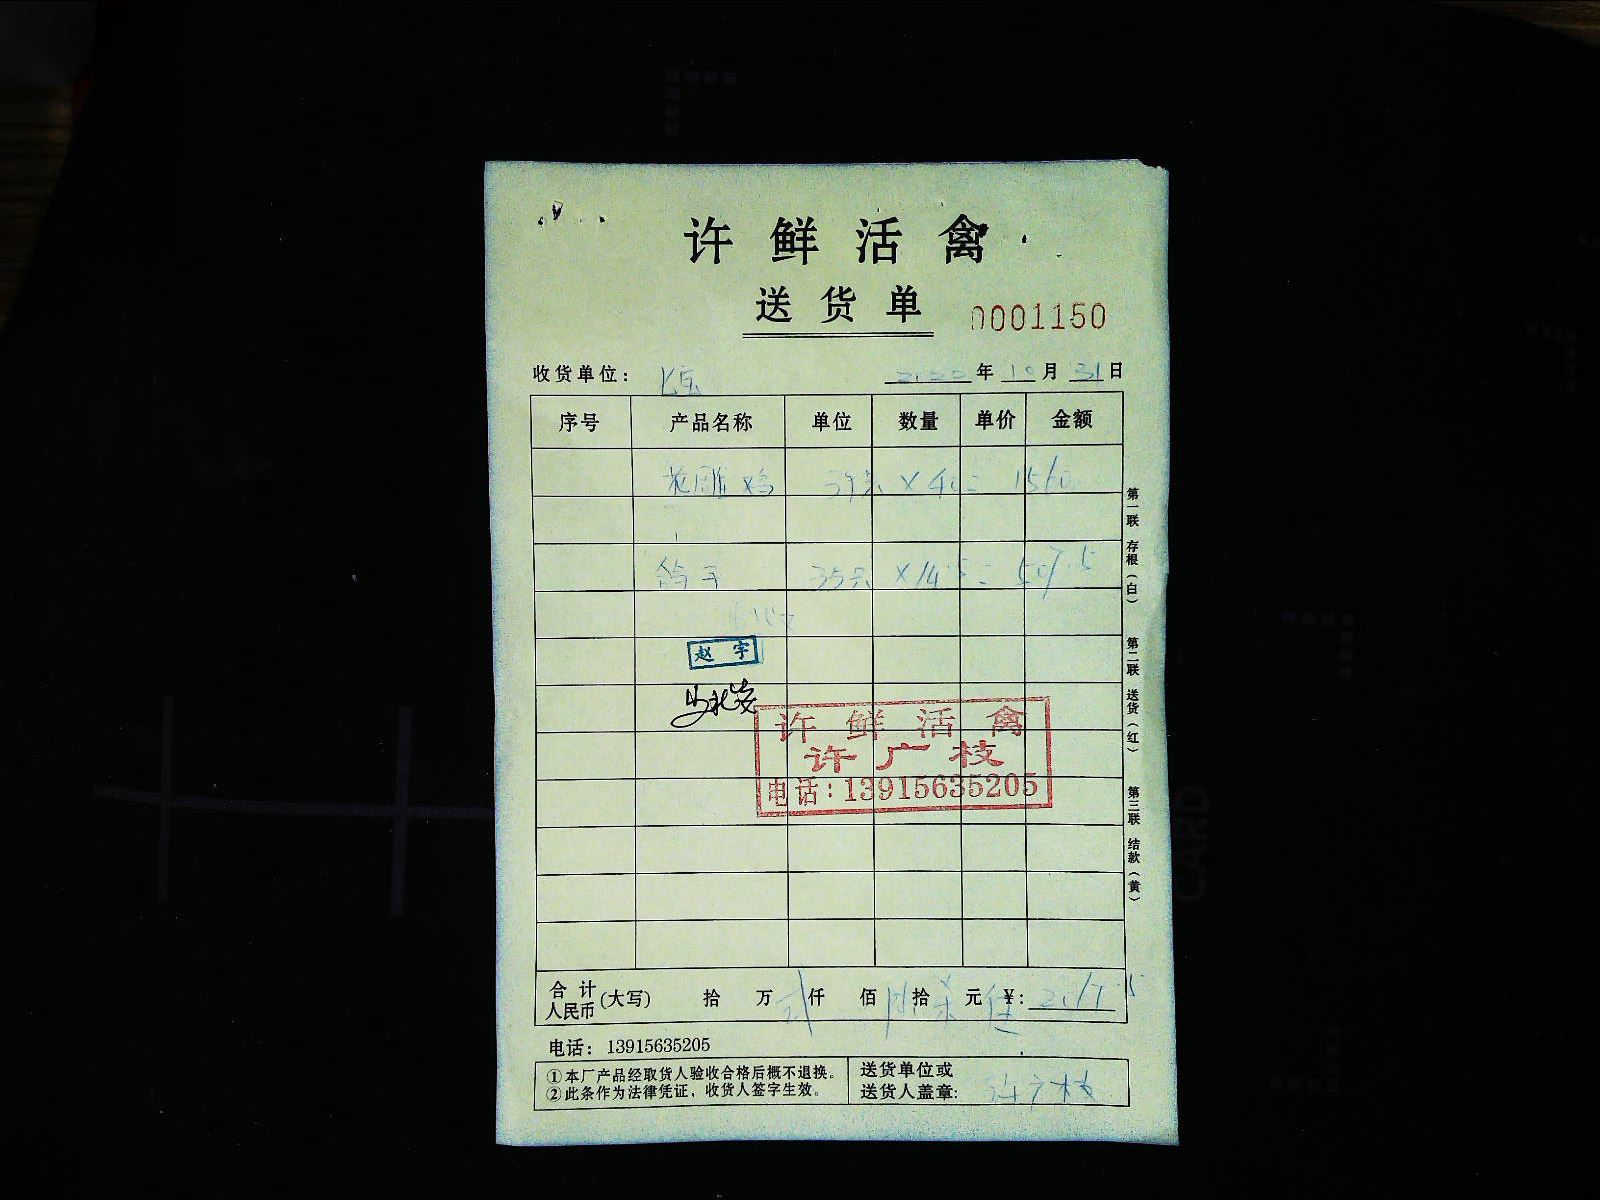 许鲜活禽
送货单
0001150
收货单位:
2020年10月31日
序号 产品名称 单位 数量 单价 金额
花雕鸡 39只 × 40 = 1560
鸽子 35只 × 14.5 = 507.5
赵宇
许鲜活禽
许广枝
电话:13915635205
第一联 存根(白) 第二联 送货(红) 第三联 结款(黄)
合计人民币(大写) 拾 万 仟 佰 拾 元 ¥:
电话: 13915635205
①本厂产品经取货人验收合格后概不退换。
②此条作为法律凭证,收货人签字生效。
送货单位或
送货人盖章: 许广枝